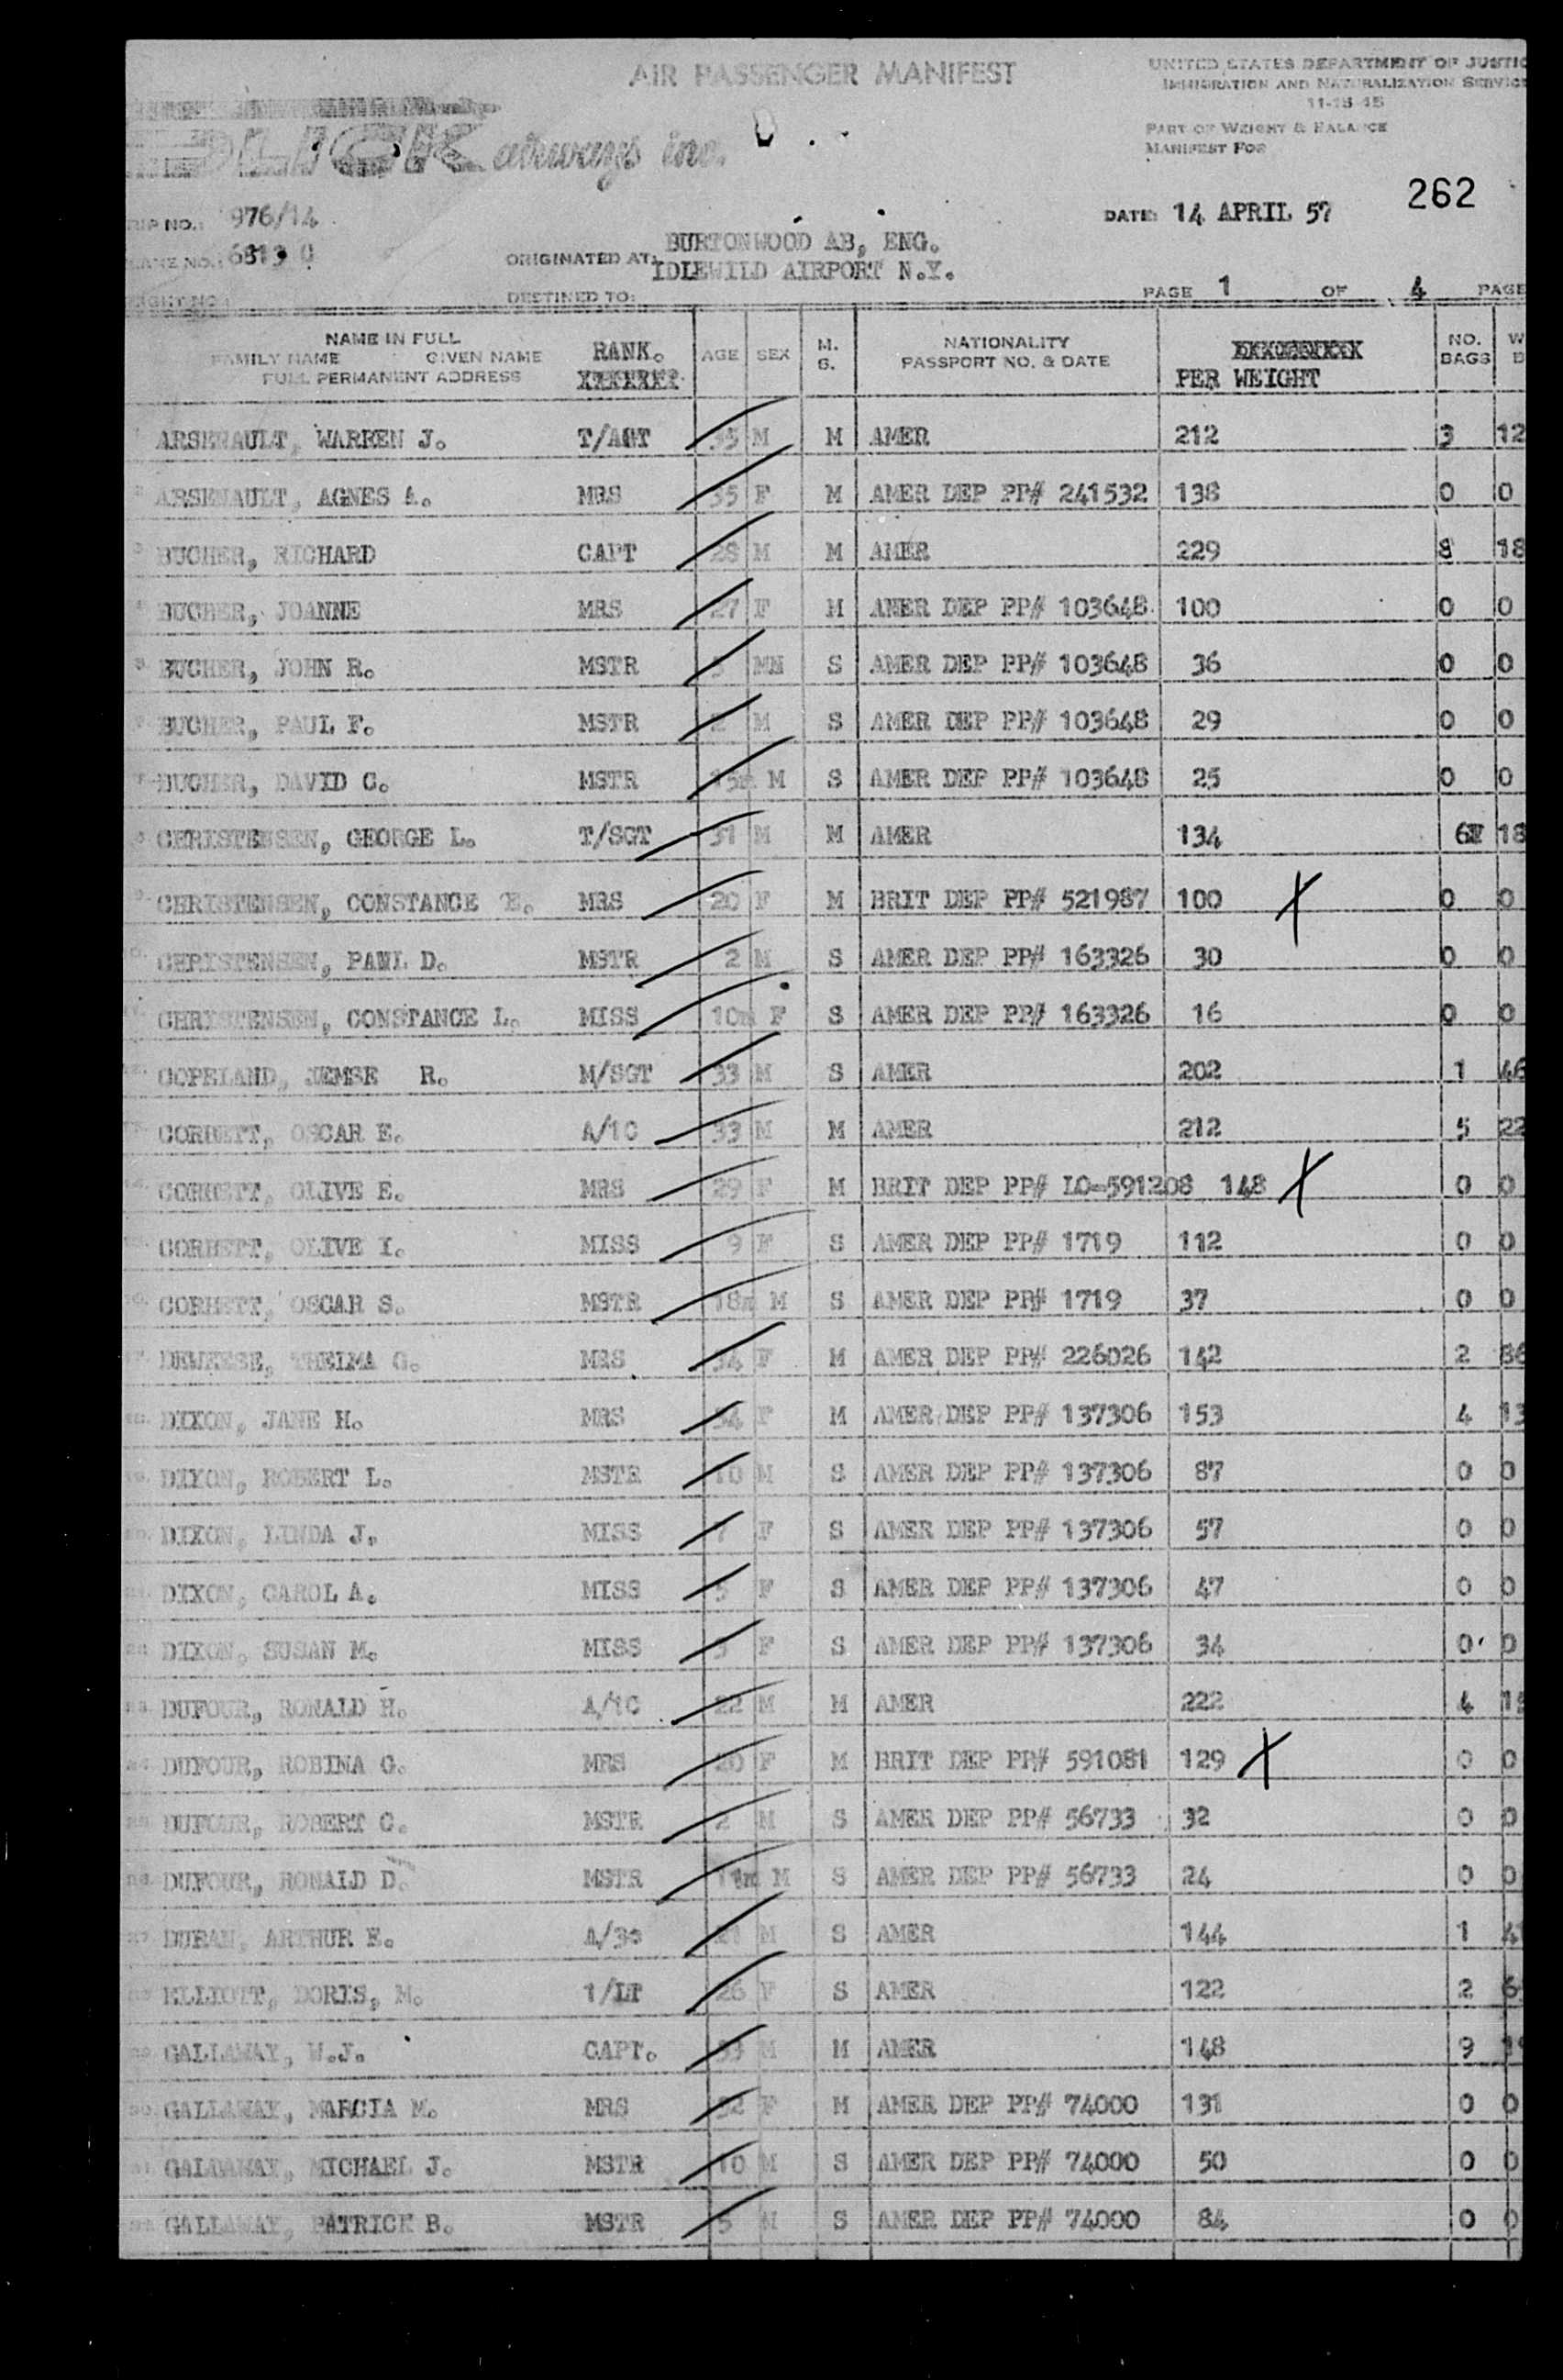 AIR PASSENGER MANIFEST
UNITED STATES DEPARTMENT OF JUSTIC
IMMIGRATION AND NATURALIZATION SERVICE
11-15-45
PART OF WEIGHT & BALANCE
MANIFEST FOR
airways inc.
262
RIP NO.: 976/14
DATE: 14 APRIL 57
LANE NO.: 6813
ORIGINATED AT: BURTONWOOD AB, ENG.
IDLEWILD AIRPORT N.Y.
DESTINED TO:
PAGE 1 OF 4 PAGE
NAME IN FULL
FAMILY NAME GIVEN NAME
FULL PERMANENT ADDRESS
RANK. AGE SEX M. S. NATIONALITY
PASSPORT NO. & DATE
PER WEIGHT
NO. BAGS W B
ARSENAULT, WARREN J. T/AGT 35 M M AMER 212 3 12
ARSENAULT, AGNES A. MRS 35 F M AMER DEP PP# 241532 138 0 0
BUCHER, RICHARD CAPT 28 M M AMER 229 8 18
BUCHER, JOANNE MRS 27 F M AMER DEP PP# 103648 100 0 0
BUCHER, JOHN R. MSTR MN S AMER DEP PP# 103648 36 0 0
BUCHER, PAUL F. MSTR 2 M S AMER DEP PP# 103648 29 0 0
BUCHER, DAVID C. MSTR 15m M S AMER DEP PP# 103648 25 0 0
CHRISTENSEN, GEORGE L. T/SGT 31 M M AMER 134 6 18
CHRISTENSEN, CONSTANCE E. MRS 20 F M BRIT DEP PP# 521987 100 X 0 0
CHRISTENSEN, PAUL D. MSTR 2 M S AMER DEP PP# 163326 30 0 0
CHRISTENSEN, CONSTANCE L. MISS 10m F S AMER DEP PP# 163326 16 0 0
COPELAND, JEMSE R. M/SGT 33 M S AMER 202 1 46
CORBETT, OSCAR E. A/1C 33 M M AMER 212 5 22
CORBETT, OLIVE E. MRS 29 F M BRIT DEP PP# LO-591208 148 X 0 0
CORBETT, OLIVE I. MISS 9 F S AMER DEP PP# 1719 112 0 0
CORBETT, OSCAR S. MSTR 18m M S AMER DEP PP# 1719 37 0 0
DEWEESE, THELMA G. MRS 34 F M AMER DEP PP# 226026 142 2 86
DIXON, JANE H. MRS 34 F M AMER DEP PP# 137306 153 4 13
DIXON, ROBERT L. MSTR 10 M S AMER DEP PP# 137306 87 0 0
DIXON, LINDA J. MISS 7 F S AMER DEP PP# 137306 57 0 0
DIXON, CAROL A. MISS 5 F S AMER DEP PP# 137306 47 0 0
DIXON, SUSAN M. MISS 3 F S AMER DEP PP# 137306 34 0 0
DUFOUR, RONALD H. A/1C 22 M M AMER 222 4 15
DUFOUR, ROBINA G. MRS 20 F M BRIT DEP PP# 591081 129 X 0 0
DUFOUR, ROBERT C. MSTR 2 M S AMER DEP PP# 56733 32 0 0
DUFOUR, RONALD D. MSTR 11m M S AMER DEP PP# 56733 24 0 0
DURAN, ARTHUR E. A/3c 21 M S AMER 144 1 4
ELLIOTT, DORIS, M. 1/LT 26 F S AMER 122 2 6
GALLAWAY, W.J. CAPT. 33 M M AMER 148 9 1
GALLAWAY, MARCIA M. MRS 32 F M AMER DEP PP# 74000 131 0 0
GALLAWAY, MICHAEL J. MSTR 10 M S AMER DEP PP# 74000 50 0 0
GALLAWAY, PATRICK B. MSTR 5 M S AMER DEP PP# 74000 84 0 0